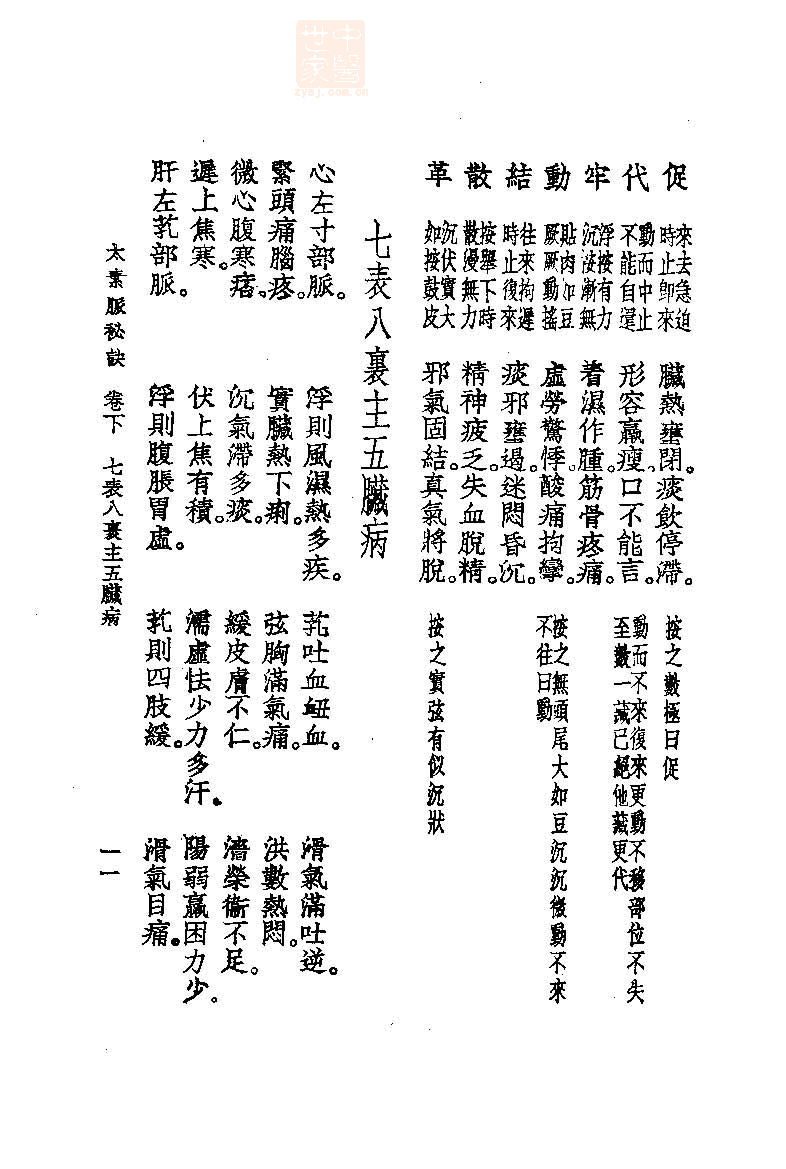 中醫世家
zysj.com.cn
促 來去急迫時止卽來 臟熱壅閉。痰飲停滯。 按之數極曰促
代 動而中止不能自還 形容羸瘦。口不能言。 動而不來復來更動不移部位不失至數一藏已絕他藏更代
牢 浮按有力沉按漸無 着濕作腫。筋骨疼痛。
動 貼肉如豆厥厥動搖 虛勞驚悸。酸痛拘攣。 按之無頭尾大如豆沉沉微動不來不往曰動
結 往來拘遲時止復來 痰邪壅遏。迷悶昏沉。
散 按舉下時散漫無力 精神疲乏。失血脫精。
革 沉伏實大如按鼓皮 邪氣固結。真氣將脫。 按之實弦有似沉狀
七表八裏主五臟病
心左寸部脈。 浮則風濕熱多疾。 芤吐血衄血。 滑氣滿吐逆。
緊頭痛腦疼。 實臟熱下痢。 弦胸滿氣痛。 洪數熱悶。
微心腹寒痞。 沉氣滯多痰。 緩皮膚不仁。 濇榮衞不足。
遲上焦寒。 伏上焦有積。 濡虛怯少力多汗。 陽弱羸困力少。
肝左芤部脈。 浮則腹脹胃虛。 芤則四肢緩。 滑氣目痛。
太素脈秘訣 卷下 七表八裏主五臟病 一一